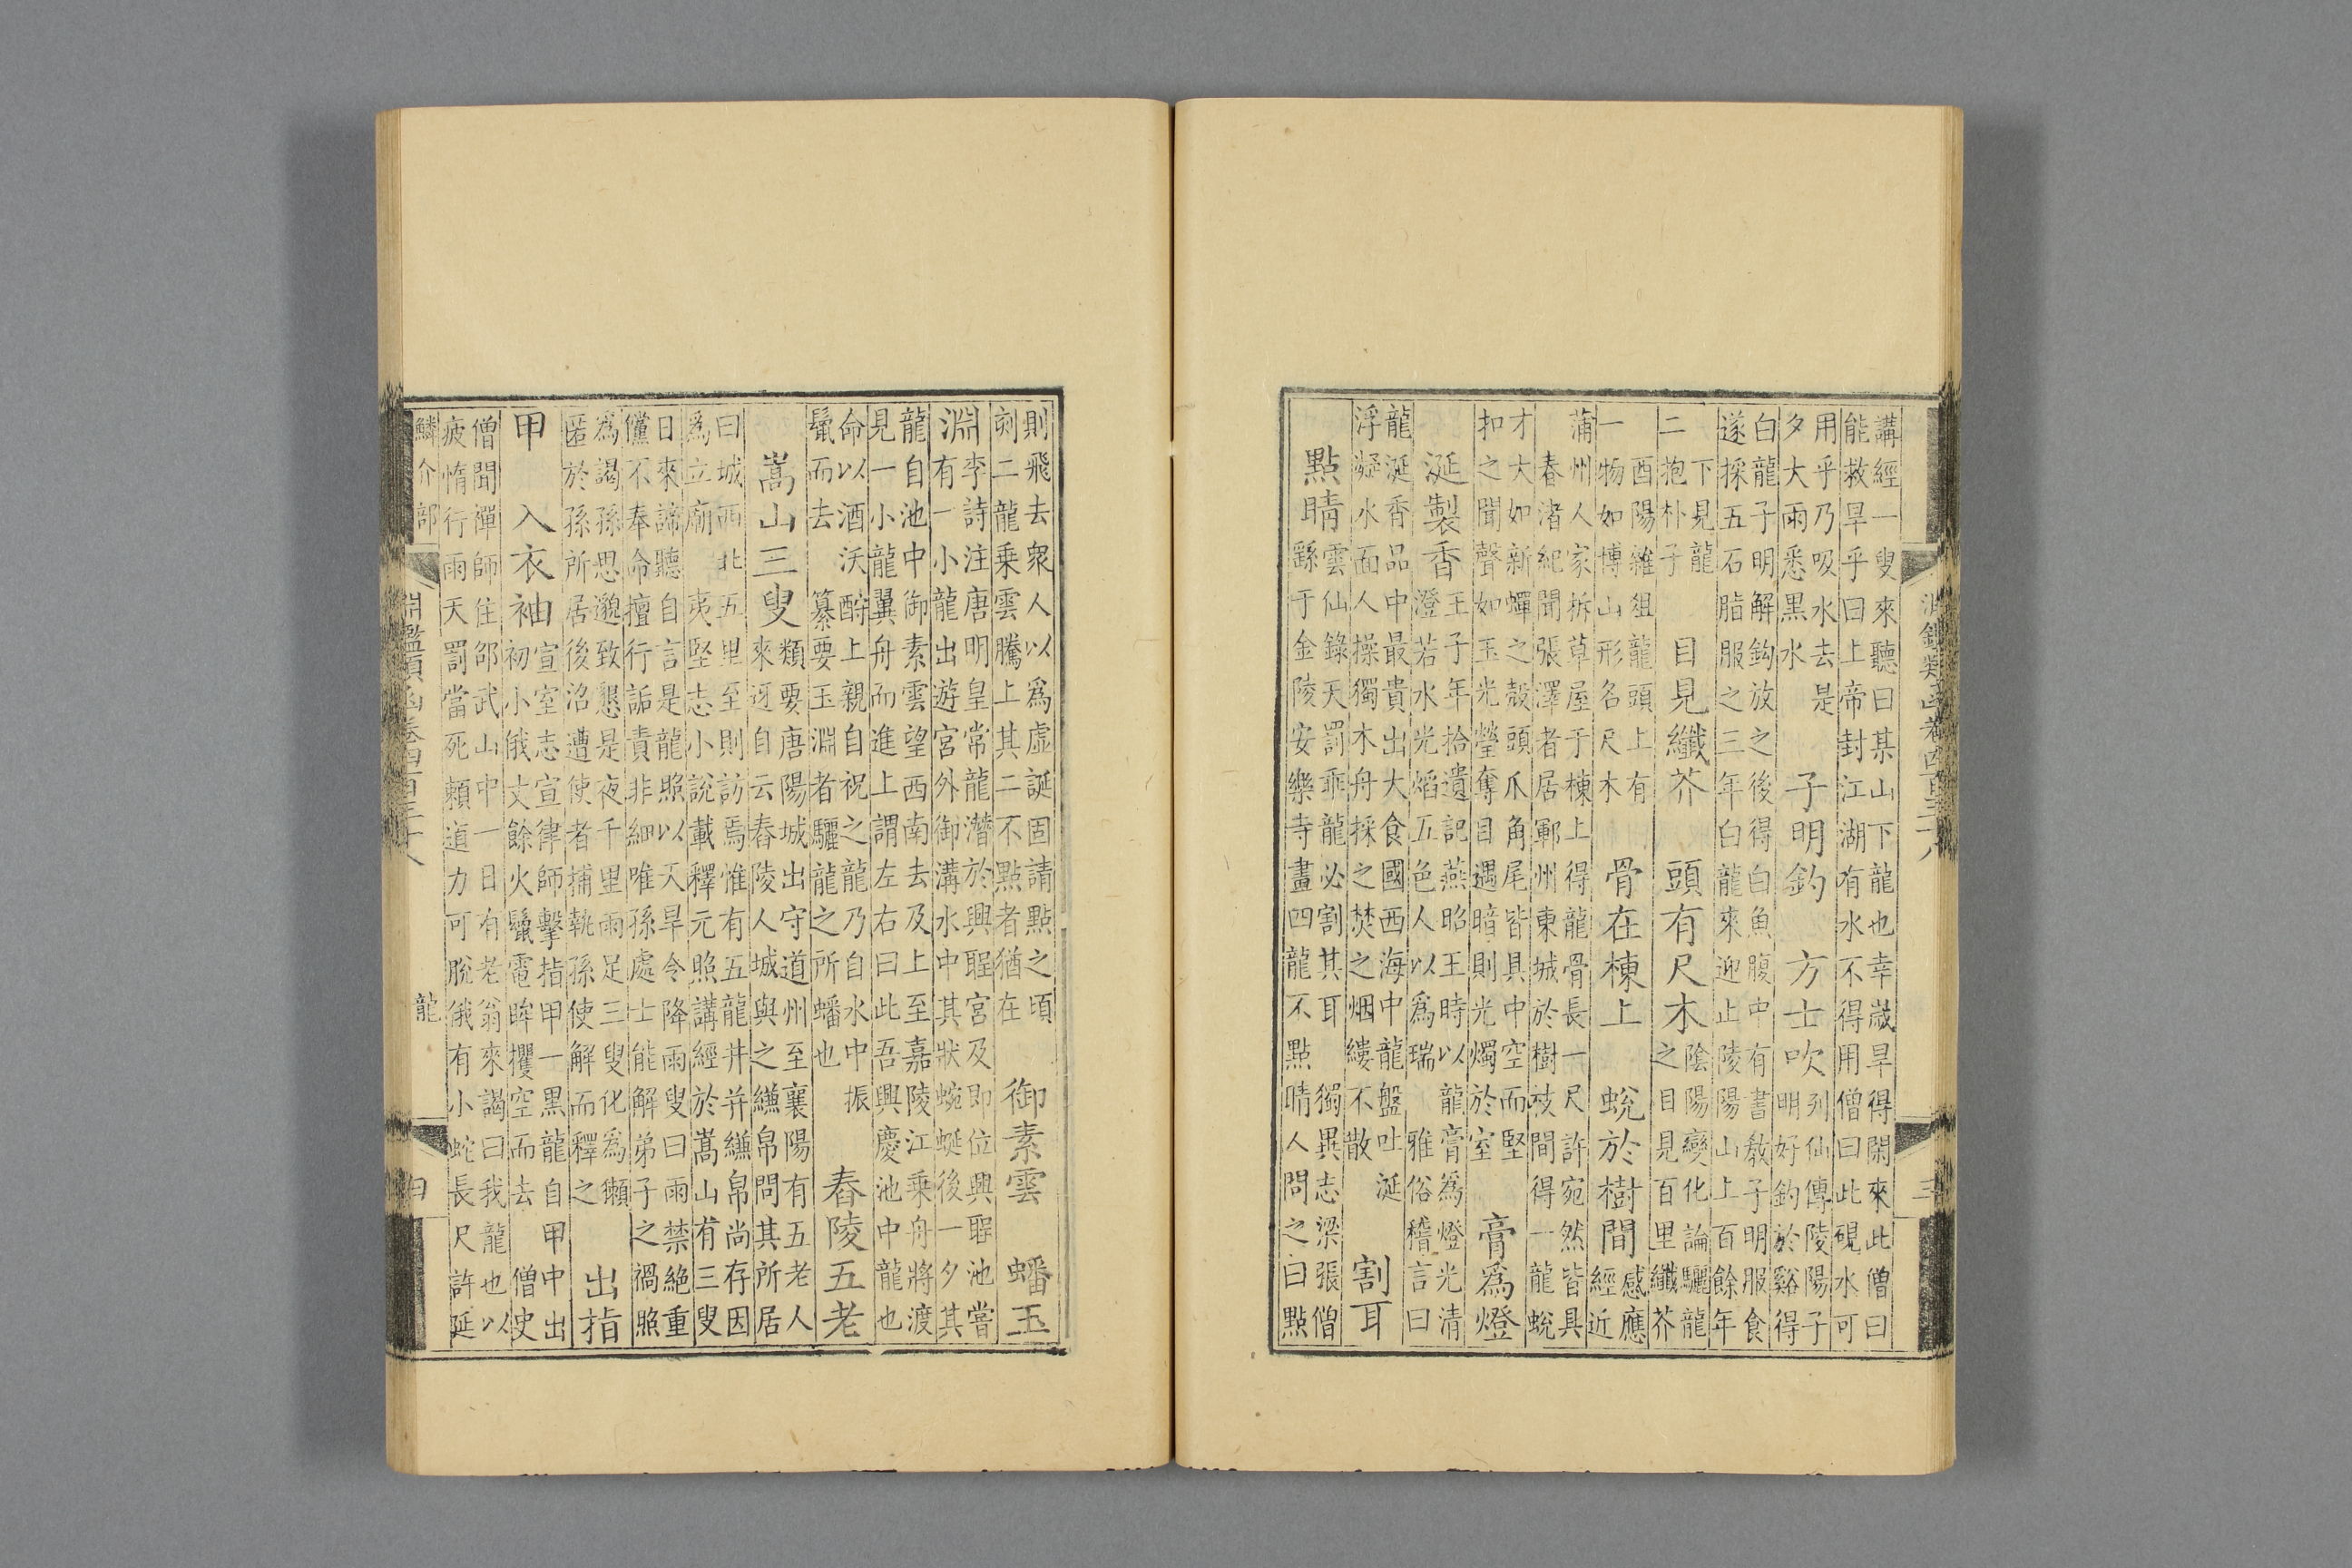 淵鑑類函卷四百三十八 三
講經一叟來聽曰某山下龍也幸歲旱得閑來此僧曰
能救旱乎曰上帝封江湖有水不得用僧曰此硯水可
用乎乃吸水去是
夕大雨悉黑水
子明釣 方士吹
列仙傳陵陽子
明好釣於谿得
白龍子明解鈎放之後得白魚腹中有書教子明服食
遂採五石脂服之三年白龍來迎止陵陽山上百餘年
下見龍
二抱朴子
目見纖芥 頭有尺木
陰陽變化論驪龍
之目見百里纖芥
酉陽雜俎龍頭上有
一物如博山形名尺木
骨在棟上 蛻於樹間
感應
經近
蒲州人家拆草屋于棟上得龍骨長一尺許宛然皆具
春渚紀聞張澤者居鄆州東城於樹枝間得一龍蛻
才大如新蟬之殼頭爪角尾皆具中空而堅
扣之聞聲如玉光瑩奪目遇暗則光燭於室
膏為燈
涎製香
王子年拾遺記燕昭王時以龍膏為燈光清
澄若水光熖五色人以為瑞 雅俗稽言曰
龍涎香品中最貴出大食國西海中龍盤吐涎
浮凝水面人操獨木舟採之焚之烟縷不散
割耳
點睛
雲仙錄天罰乖龍必割其耳 獨異志梁張僧
繇于金陵安樂寺畫四龍不點睛人問之曰點
則飛去衆人以為虛誕固請點之頃
刻二龍乘雲騰上其二不點者猶在
御素雲 蟠玉
淵
李詩注唐明皇常龍潛於興聖宮及即位興聖池嘗
有一小龍出遊宮外御溝水中其狀蜿蜒後一夕其
龍自池中御素雲望西南去及上至嘉陵江乘舟將渡
見一小龍翼舟而進上謂左右曰此吾興慶池中龍也
命以酒沃酹上親自祝之龍乃自水中振
鬛而去 纂要玉淵者驪龍之所蟠也
舂陵五老
嵩山三叟
類要唐陽城出守道州至襄陽有五老人
來迓自云舂陵人城與之縑帛問其所居
曰城西北五里至則訪焉惟有五龍井并縑帛尚存因
為立廟 夷堅志小說載釋元照講經於嵩山有三叟
日來諦聽自言是龍照以天旱令降雨叟曰雨禁絕重
儻不奉命擅行詬責非細唯孫處士能解弟子之禍照
為謁孫思邈致懇是夜千里雨足三叟化為獺
匿於孫所居後沼遭使者捕執孫使解而釋之
出指
甲 入衣袖
宣室志宣律師擊指甲一黑龍自甲中出
初小俄丈餘火鬛電眸攫空而去 僧史
僧聞禪師住邵武山中一日有老翁來謁曰我龍也以
疲惰行雨天罰當死賴道力可脫俄有小蛇長尺許延
鱗介部 淵鑑類函卷四百三十八 龍 四